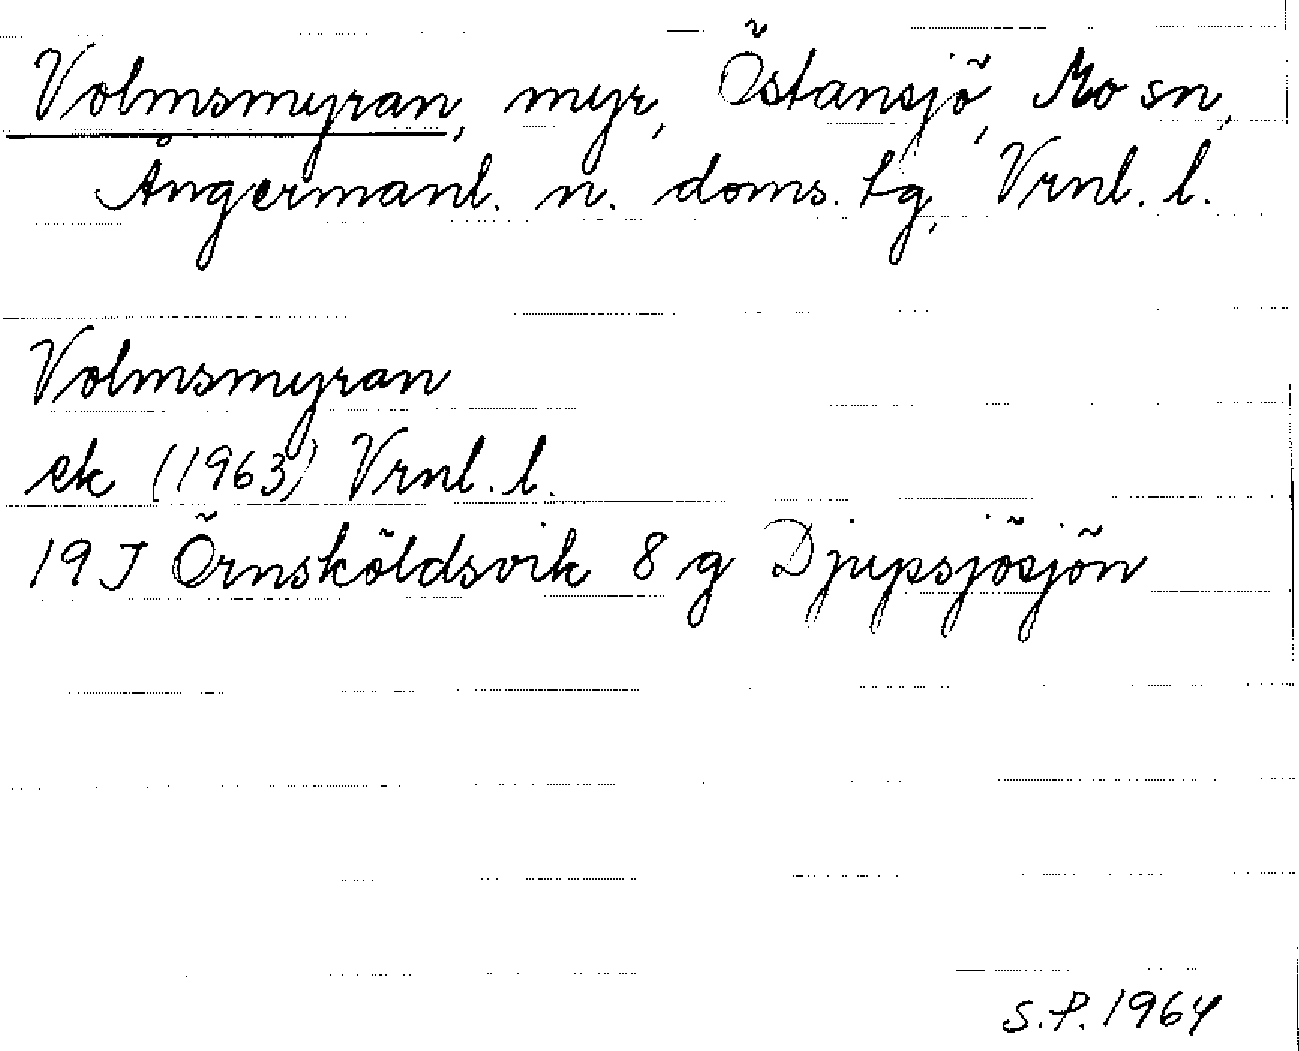 Volmsmyran, myr, Östansjö, Mo sn,
Ångermanl. n. doms. tg, Vrnl. l.
Volmsmyran
ek (1963) Vrnl. l.
19 J Örnsköldsvik 8 g Djupsjösjön
S.P. 1964